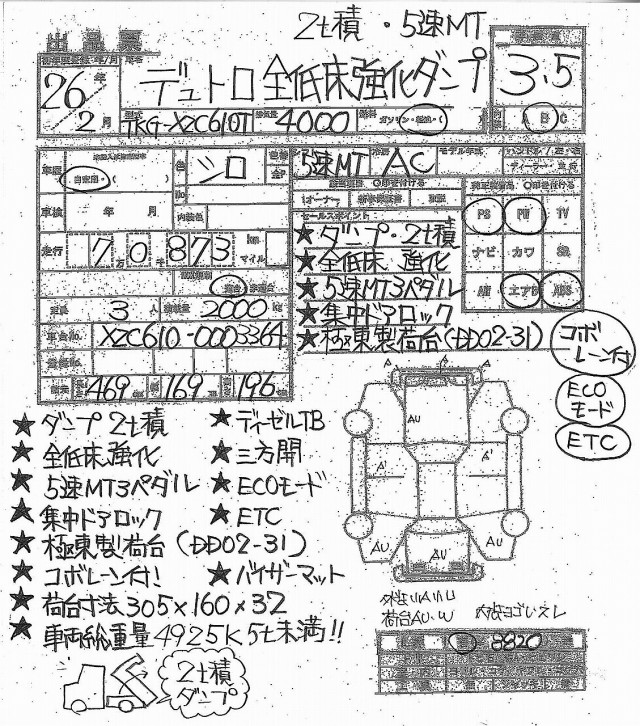 2t積・5速MT
出品票
26年
2月
デュトロ全低床強化ダンプ
3.5
型式 TKG-XZC610T
4000
ガソリン・軽油・(
A B C
シロ
5速MT
AC
自家用・(
車検 年 月
内装色
走行 7万0千873 km
マイル
定員 3人
2000 kg
XZC610-0003364
469 169 196
セールスポイント
★ダンプ・2t積
★全低床 強化
★5速MT3ペダル
★集中ドアロック
★極東製荷台(DD02-31)
PS PW TV
ナビ カワ SR
AW エアB ABS
コボレーン付
ECOモード
ETC
★ダンプ2t積
★全低床強化
★5速MT3ペダル
★集中ドアロック
★極東製荷台(DD02-31)
★コボレーン付!
★荷台寸法305×160×32
★車両総重量4925K5t未満!!
★ディーゼルTB
★三方開
★ECOモード
★ETC
★バイザーマット
2t積
ダンプ
A
A
A
AU
A'
A'
AU
AU
AU
荷台AU.W
8820